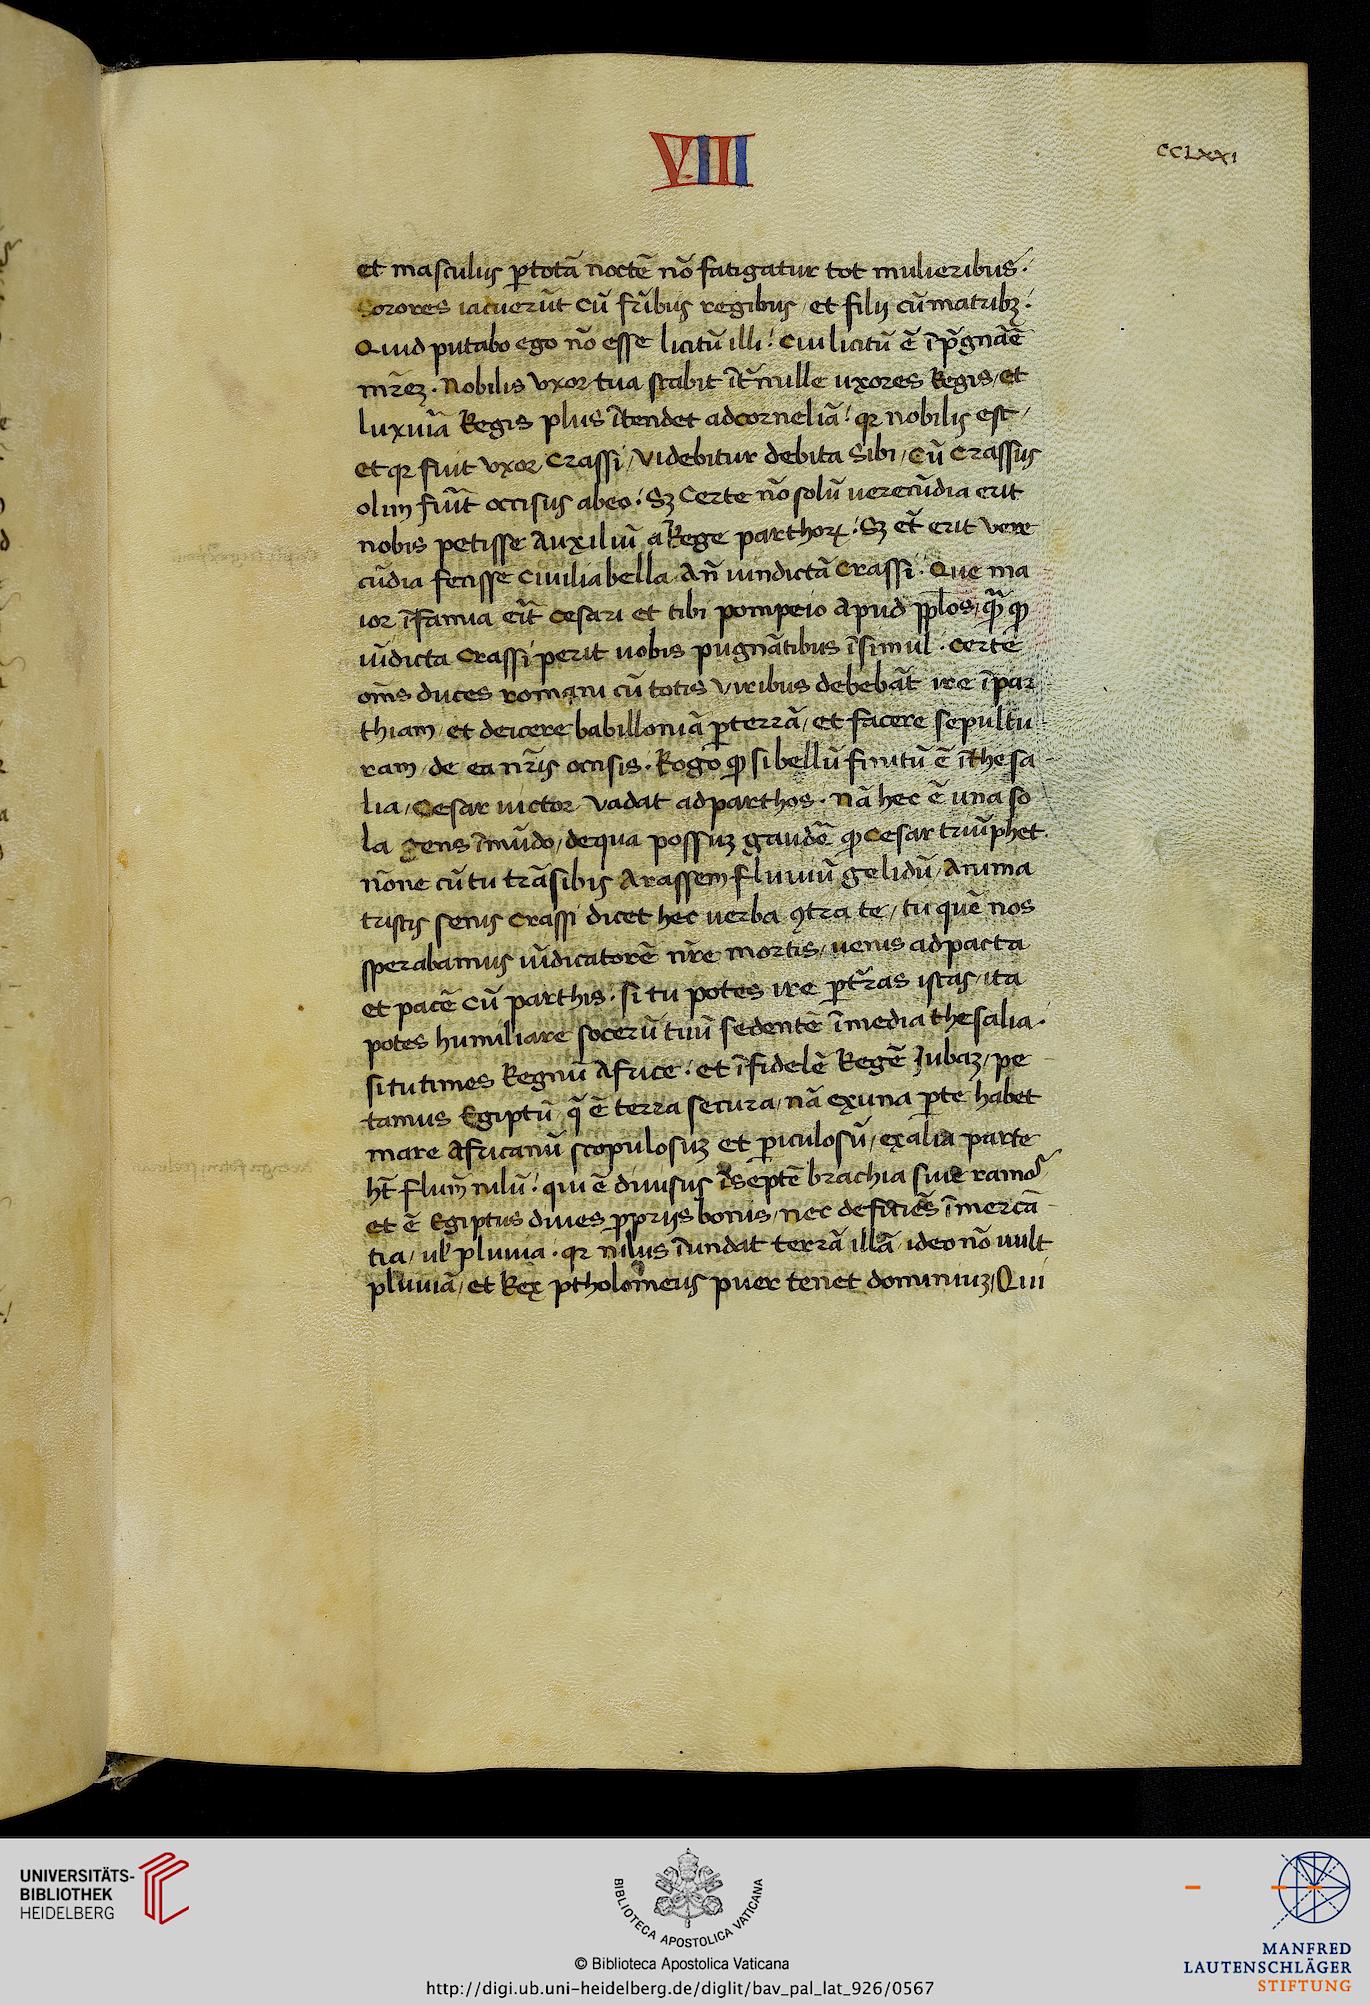 VIII
CCLXXI
et masculus ꝑtotā noctē nō fatigatur tot mulieribus.
Sorores iacuerūt cū fr̄ibus regibus / et filij cū matribꝫ.
Quid putabo ego nō esse licitū illi! cui licitū ē īp̄gnāē
mr̄eꝫ. Nobilis uxor tua stabit īt̄ mille uxores Regis, et
luxuīa Regis plus ītendet ad corneliā! qꝛ nobilis est /
et qꝛ fuit uxor Crassi / videbitur debita sibi / cū Crassus
olim fuīt occisus ab eo! Sꝫ Certe nō solū uerecūdia erit
nobis petisse Auxiliū a Rege parthoꝝ! Sꝫ et̄ erit vere
cūdia fecisse Ciuilia bella An̄ uindictā Crassi. Que ma
ior īfamia eīt Cesari et tibi pompeio Apud ppl̄os, q̄ꝫ ꝙ
uīdicta Crassi perit uobis pugnātibus īsimul. certe
om̄s duces romani cū totis viribus debebāt ire īpar
thiam / et deicere babilloniā ꝑterrā / et facere sepultu
ram / de ea nr̄is occisis. Rogo ꝙ si bellū finitū ē īthesa
lia / Cesar uictor vadat ad parthos. nā hec ē una so
la gens īmūdo / de qua possuꝫ gaudē ꝙ Cesar triūphet.
nōne cū tu trāsibis Arassem fluuiū gelidū / Anima
tristis senis Crassi dicet hec uerba ꝯtra te / tu quē nos
sperabamus uīdicatorē nr̄e mortis / uenis ad pacta
et pacē cū parthis. si tu potes ire ꝑt̄ras istas / ita
potes humiliare socerū tuū sedentē īmedia thesalia.
si tu times Regnū Africe! et īfidelē Regē Jubaꝫ / pe
tamus Egiptū q̄ ē terra secura / nā ex una ꝑte habet
mare Africanū scopulosuꝫ et ꝑiculosū / ex alia parte
hꝫ flum̄ nilū! qui ē diuisus īseptē brachia siue ramos
et ē Egiptus diues ꝓprijs bonis / nec deficiēs īmercā
tia / ul' pluuia. qꝛ nilus īundat terrā illā / ideo nō uult
pluuiā / et Rex ptholomeus puer tenet dominiuꝫ / Qui
UNIVERSITÄTS-
BIBLIOTHEK
HEIDELBERG
BIBLIOTECA APOSTOLICA VATICANA
© Biblioteca Apostolica Vaticana
http://digi.ub.uni-heidelberg.de/diglit/bav_pal_lat_926/0567
MANFRED
LAUTENSCHLÄGER
STIFTUNG